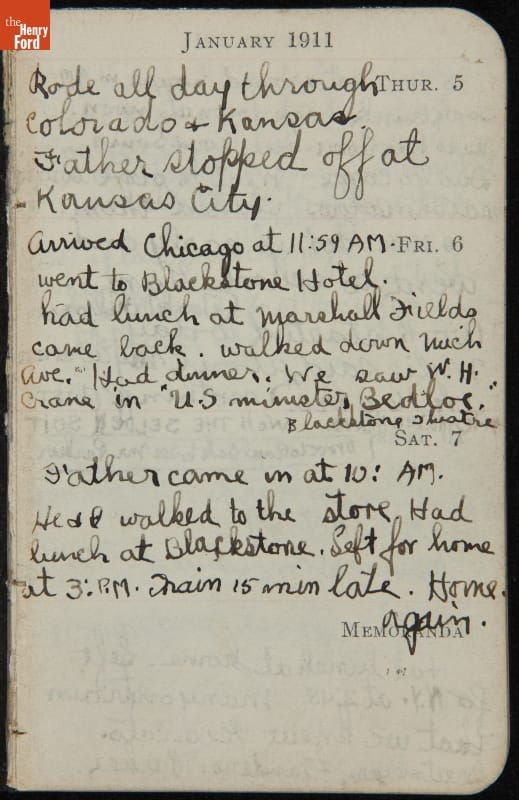 the
Henry
Ford
JANUARY 1911
Rode all day through THUR. 5
Colorado & Kansas.
Father stopped off at
Kansas City.
Arrived Chicago at 11:59 AM. FRI. 6
went to Blackstone Hotel.
had lunch at Marshall Fields
came back. walked down Mich
Ave. Had dinner. We saw W. H.
Crane in "U.S minister, Bedloe."
Blackstone Theatre
SAT. 7
Father came in at 10: AM.
He & I walked to the store Had
lunch at Blackstone. Left for home
at 3: P.M. Train 15 min late. Home
again.
MEMORANDA